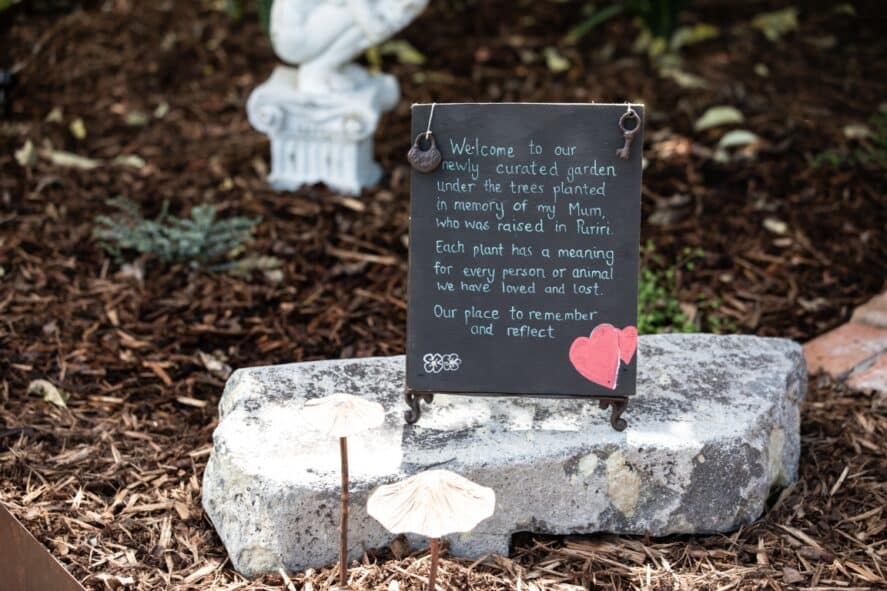 Welcome to our
newly curated garden
under the trees planted
in memory of my Mum,
who was raised in Puriri.
Each plant has a meaning
for every person or animal
we have loved and lost.
Our place to remember
and reflect